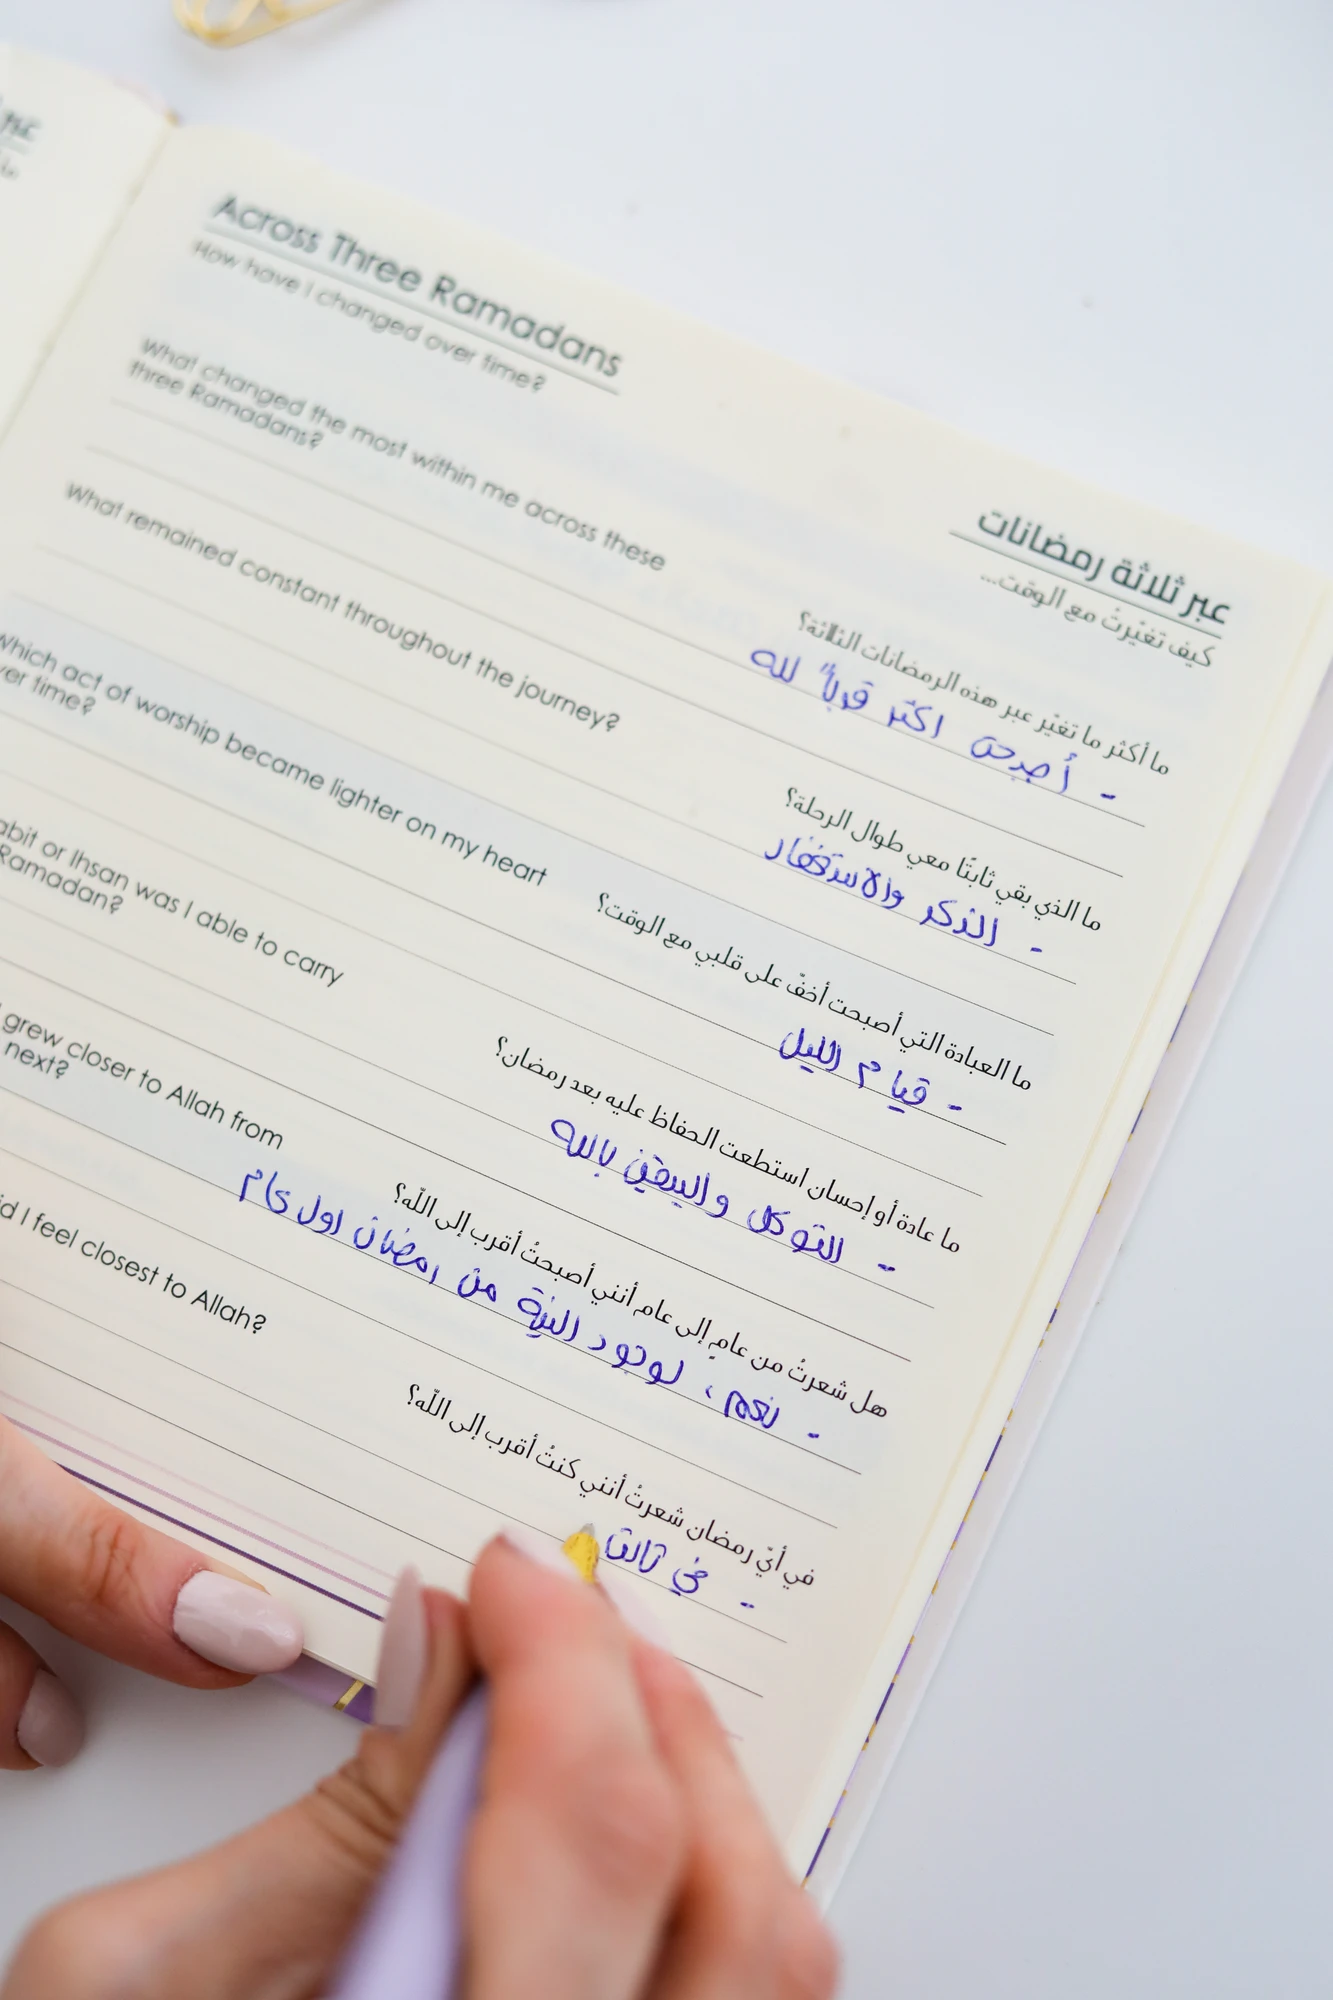 Across Three Ramadans
How have I changed over time?
What changed the most within me across these
three Ramadans?
What remained constant throughout the journey?
Which act of worship became lighter on my heart
over time?
abit or Ihsan was I able to carry
Ramadan?
I grew closer to Allah from
next?
id I feel closest to Allah?
عبر ثلاثة رمضانات
كيف تغيّرتُ مع الوقت...
ما أكثر ما تغيّر عبر هذه الرمضانات الثلاثة؟
- أصبحت اكثر قرباً لله
ما الذي بقي ثابتًا معي طوال الرحلة؟
- الذكر والاستغفار
ما العبادة التي أصبحت أخفّ على قلبي مع الوقت؟
- قيام الليل
ما عادة أو إحسان استطعت الحفاظ عليه بعد رمضان؟
- التوكل واليقين بالله
هل شعرتُ من عامٍ إلى عام أنني أصبحتُ أقرب إلى الله؟
- نعم، لوجود النية من رمضان اول عام
في أيّ رمضان شعرتُ أنني كنتُ أقرب إلى الله؟
- في ثالث